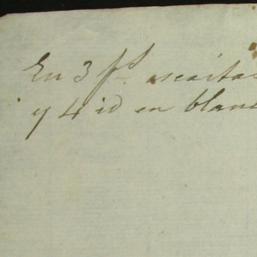 En 3 fs escritas
y 4 id en blanc